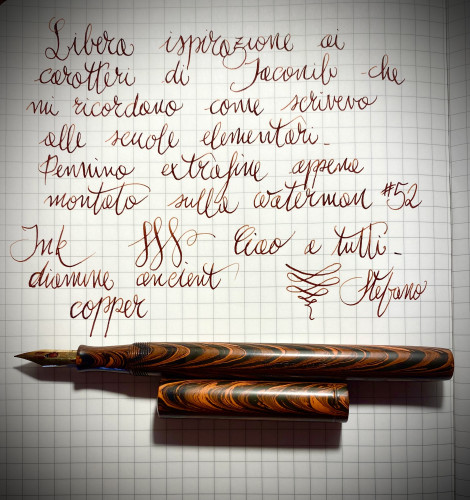 Libera ispirazione ai
caratteri di Iaconib che
mi ricordano come scrivevo
alle scuole elementari.
Pennino extrafine appena
montato sulla waterman #52
Ink Ciao a tutti.
diamine ancient Stefano
copper